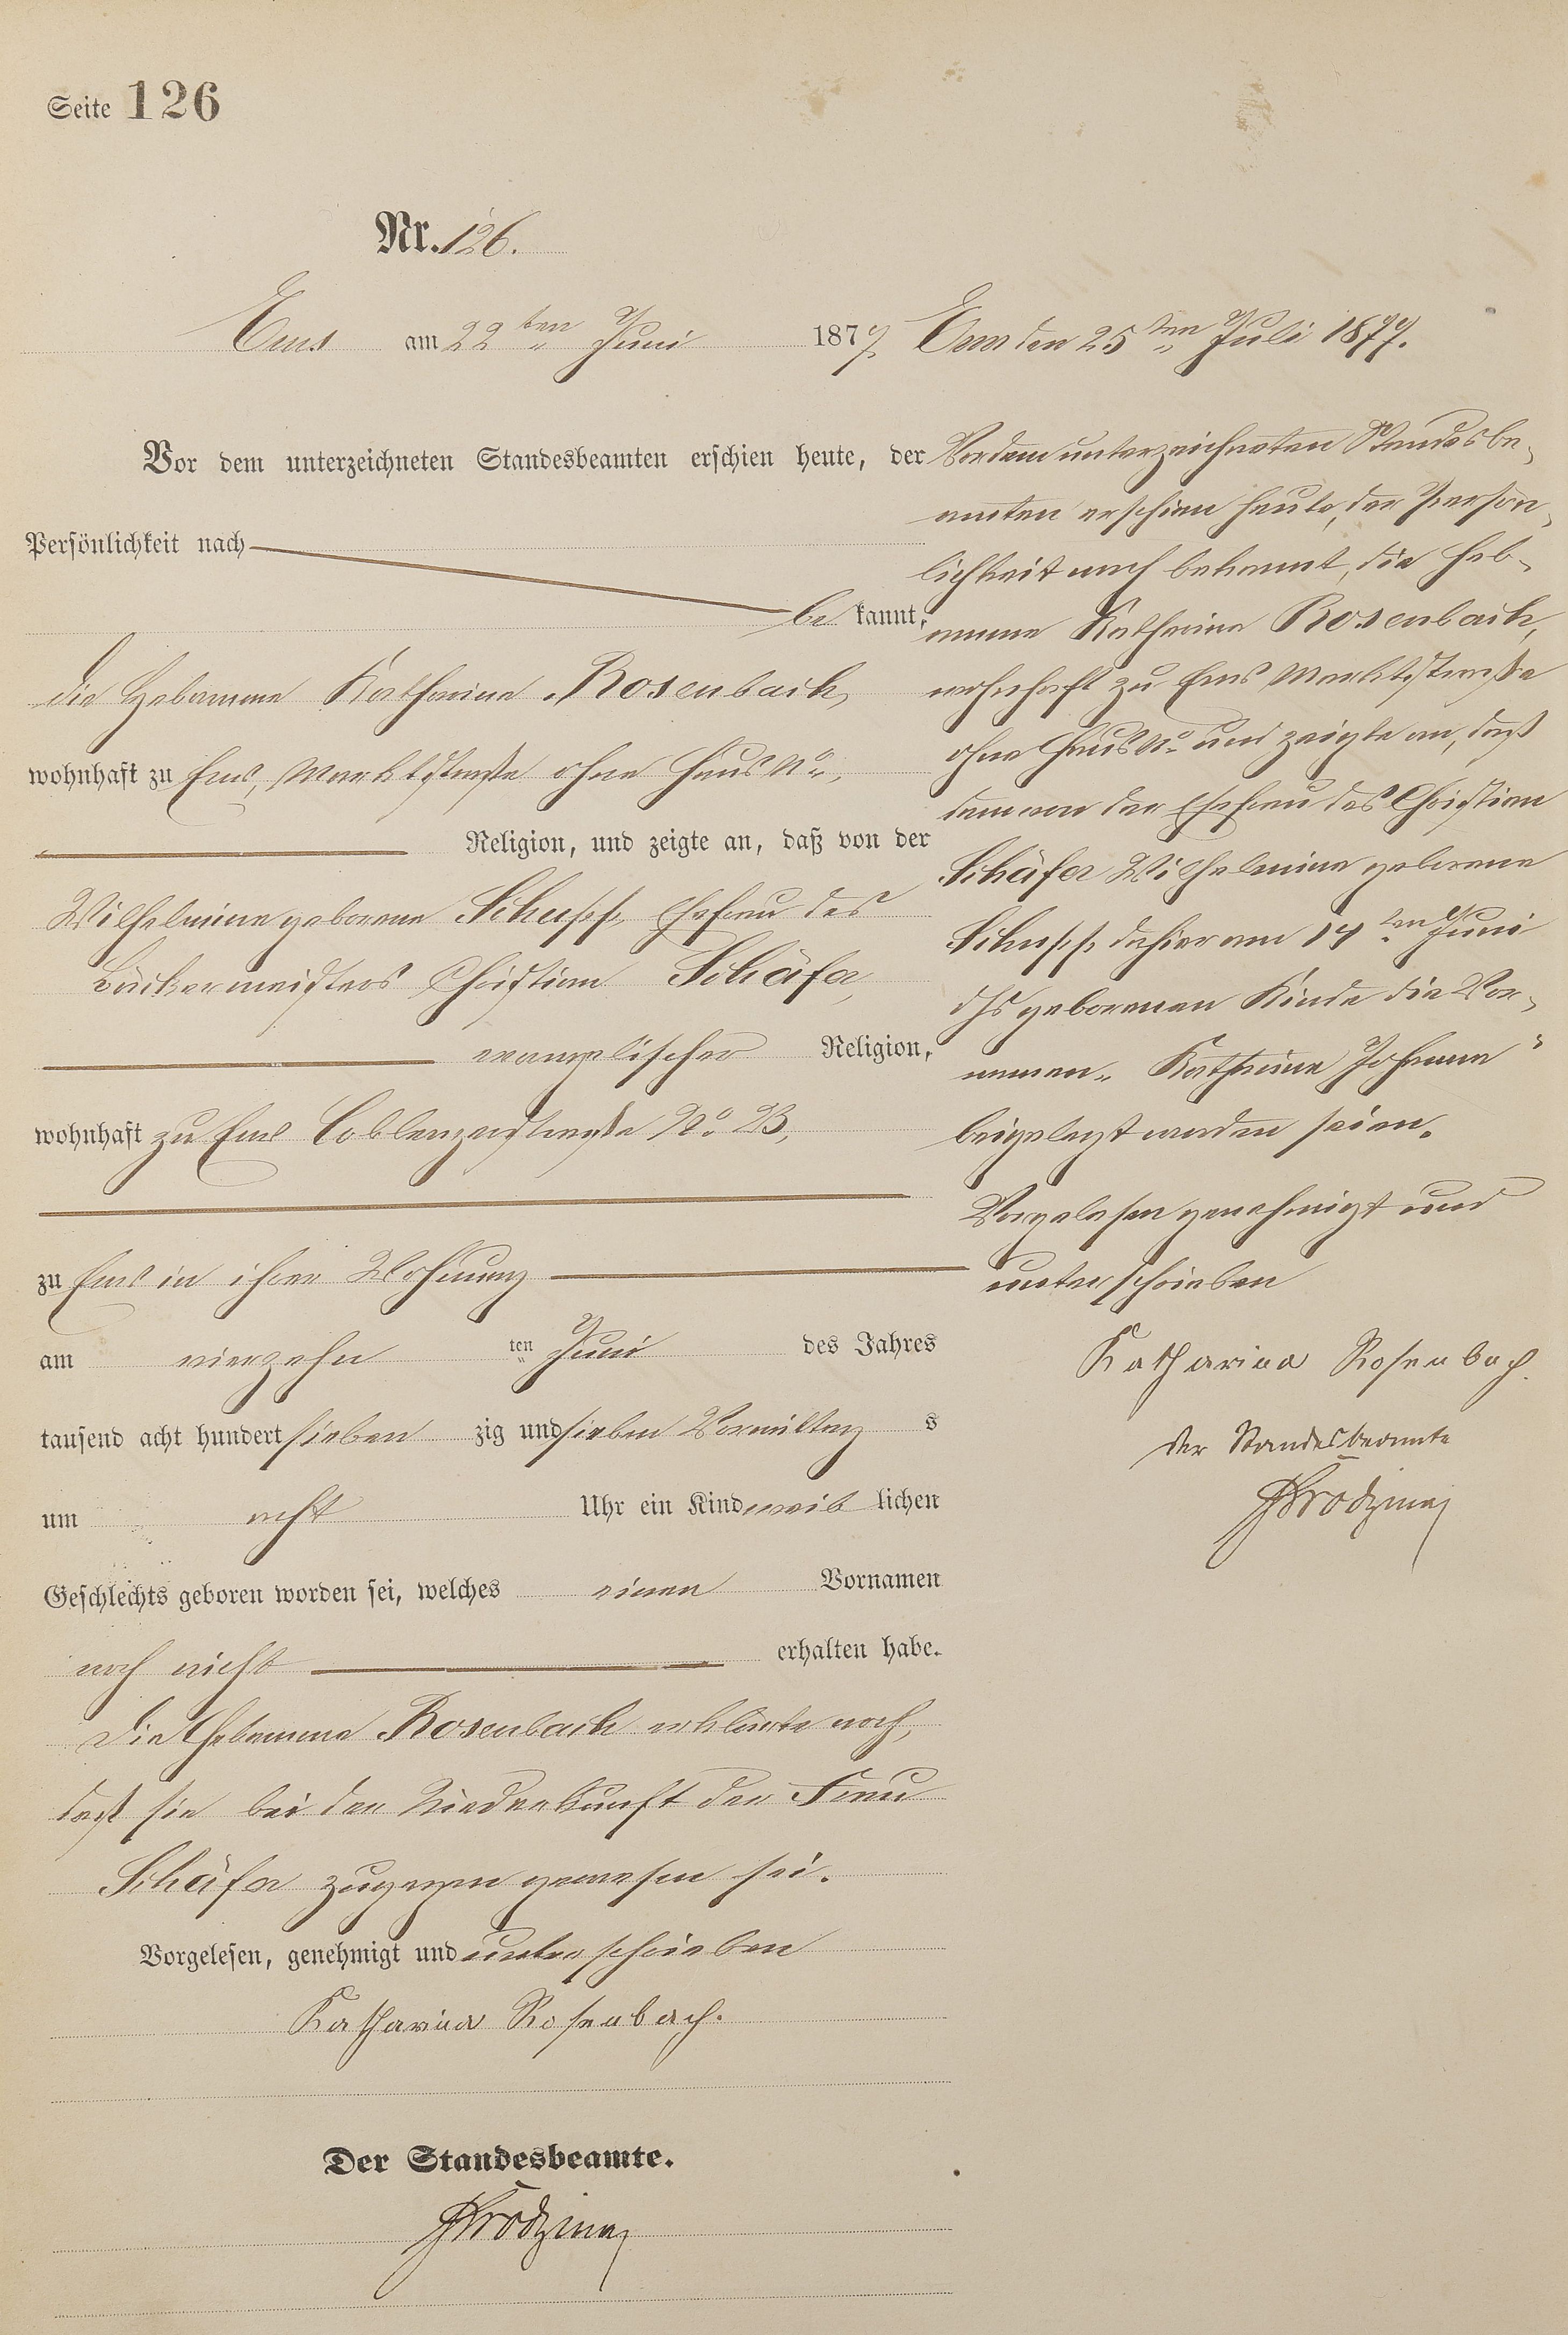 Seite 126
Nr. 126.
Ems am 22ten Juni 1877.
Vor dem unterzeichneten Standesbeamten erschien heute, der
Persönlichkeit nach
be kannt,
die Hebamme Katharina Rosenbach,
wohnhaft zu Ems, Marktstraße ohne Haus No.,
Religion, und zeigte an, daß von der
Wilhelmine geborene Schupp, Ehefrau des
Bäckermeisters Christian Schäfer,
evangelischer Religion,
wohnhaft zu Ems Coblenzerstraße No. 23,
zu Ems in ihrer Wohnung
am vierzehn ten Juni des Jahres
tausend acht hundert sieben zig und sieben Vormittag s
um acht Uhr ein Kind weib lichen
Geschlechts geboren worden sei, welches einen Vornamen
noch nicht erhalten habe.
Die Hebamme Rosenbach erklärte noch,
daß sie bei der Niederkunft der Frau
Schäfer zugegen gewesen sei.
Vorgelesen, genehmigt und unterschrieben
Katharina Rosenbach.
Der Standesbeamte.
Ems den 25ten Juli 1877.
Vor dem unterzeichneten Standesbe-
amten erschien heute, der Persön-
lichkeit nach bekannt, die Heb-
amme Katharina Rosenbach,
wohnhaft zu Ems Marktstraße
ohne Haus No. und zeigte an, daß
dem von der Ehefrau des Christian
Schäfer Wilhelmine geborene
Schupp dahier am 14ten Juni
dJs geborenen Kinde die Vor-
namen „Katharina Johanna"
beigelegt worden seien.
Vorgelesen genehmigt und
unterschrieben
Katharina Rosenbach.
Der Standesbeamte